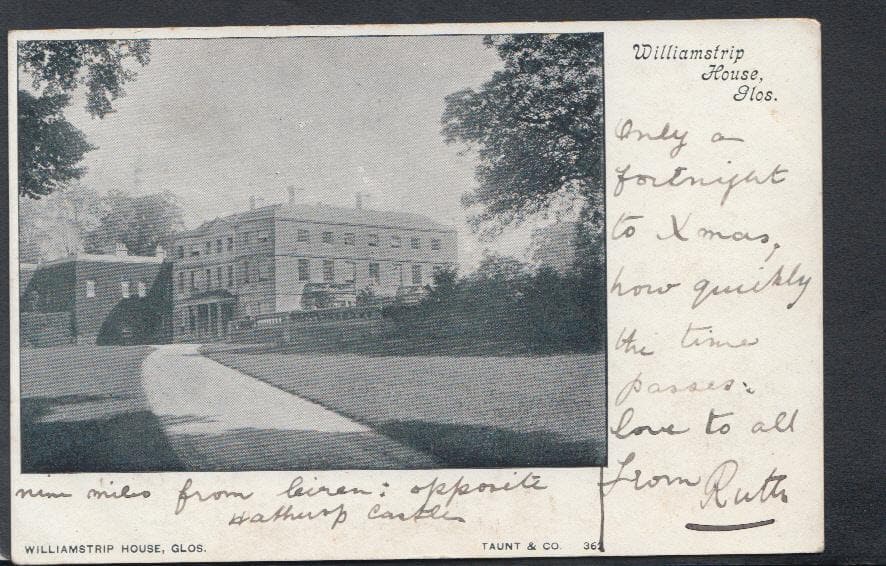 Williamstrip
House,
Glos.
Only a
fortnight
to Xmas,
how quickly
the time
passes.
love to all
from Ruth
nine miles from Ciren: opposite
Hatherop Castle
WILLIAMSTRIP HOUSE, GLOS.
TAUNT & CO. 362